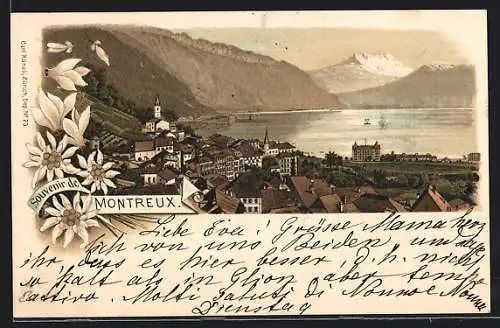 Carl Künzli, Zürich, Dep. No 73
Souvenir de
MONTREUX.
Liebe Eva! Grüsse Mama herz
ich von uns Beiden, um
ihr, dass es hier besser, d.h. nicht
so kalt als in Glion aber tempo
cattivo. Molti saluti di Nonno e Nonna
Dienstag